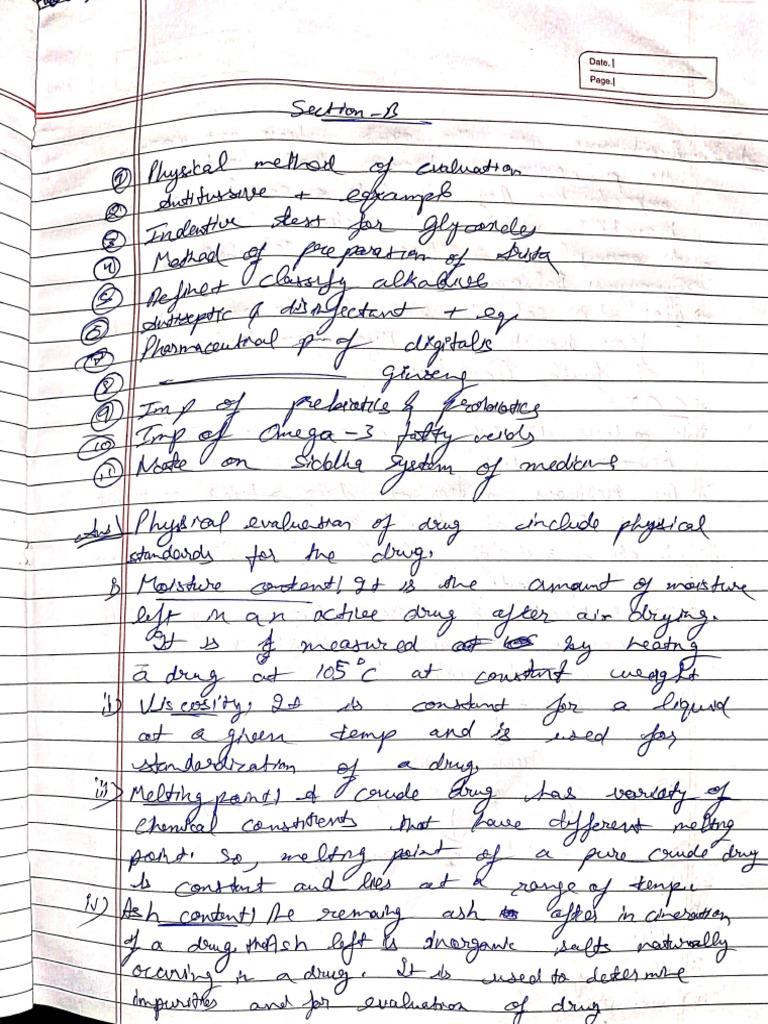 Date.
Page.
Section-B
① Physical method of evaluation
② Antitussive + example
③ Indentive test for Glycosides
④ Method of preparation of Arista
⑤ Define + classify alkaloids
⑥ Antiseptic & disinfectant + eg
⑦ Pharmaceutical p- of digitalis
⑧ ginseng
⑨ Imp of prebiotics & probiotics
⑩ Imp of Omega-3 fatty acids
⑪ Note on Siddha System of medicine
Ans) Physical evaluation of drug include physical
standards for the drug.
i) Moisture content; It is the amount of moisture
left in an active drug after air drying.
It is measured by heating
a drug at 105°C at constant weight
ii) Viscosity; It is constant for a liquid
at a given temp and is used for
standardization of a drug.
iii) Melting point; A crude drug has variety of
chemical constituents that have different melting
point. So, melting point of a pure crude drug
is constant and lies at a range of temp.
iv) Ash content; The remaining ash after incineration
of a drug. Ash left is inorganic salts naturally
occuring in a drug. It is used to determine
impurities and for evaluation of drug